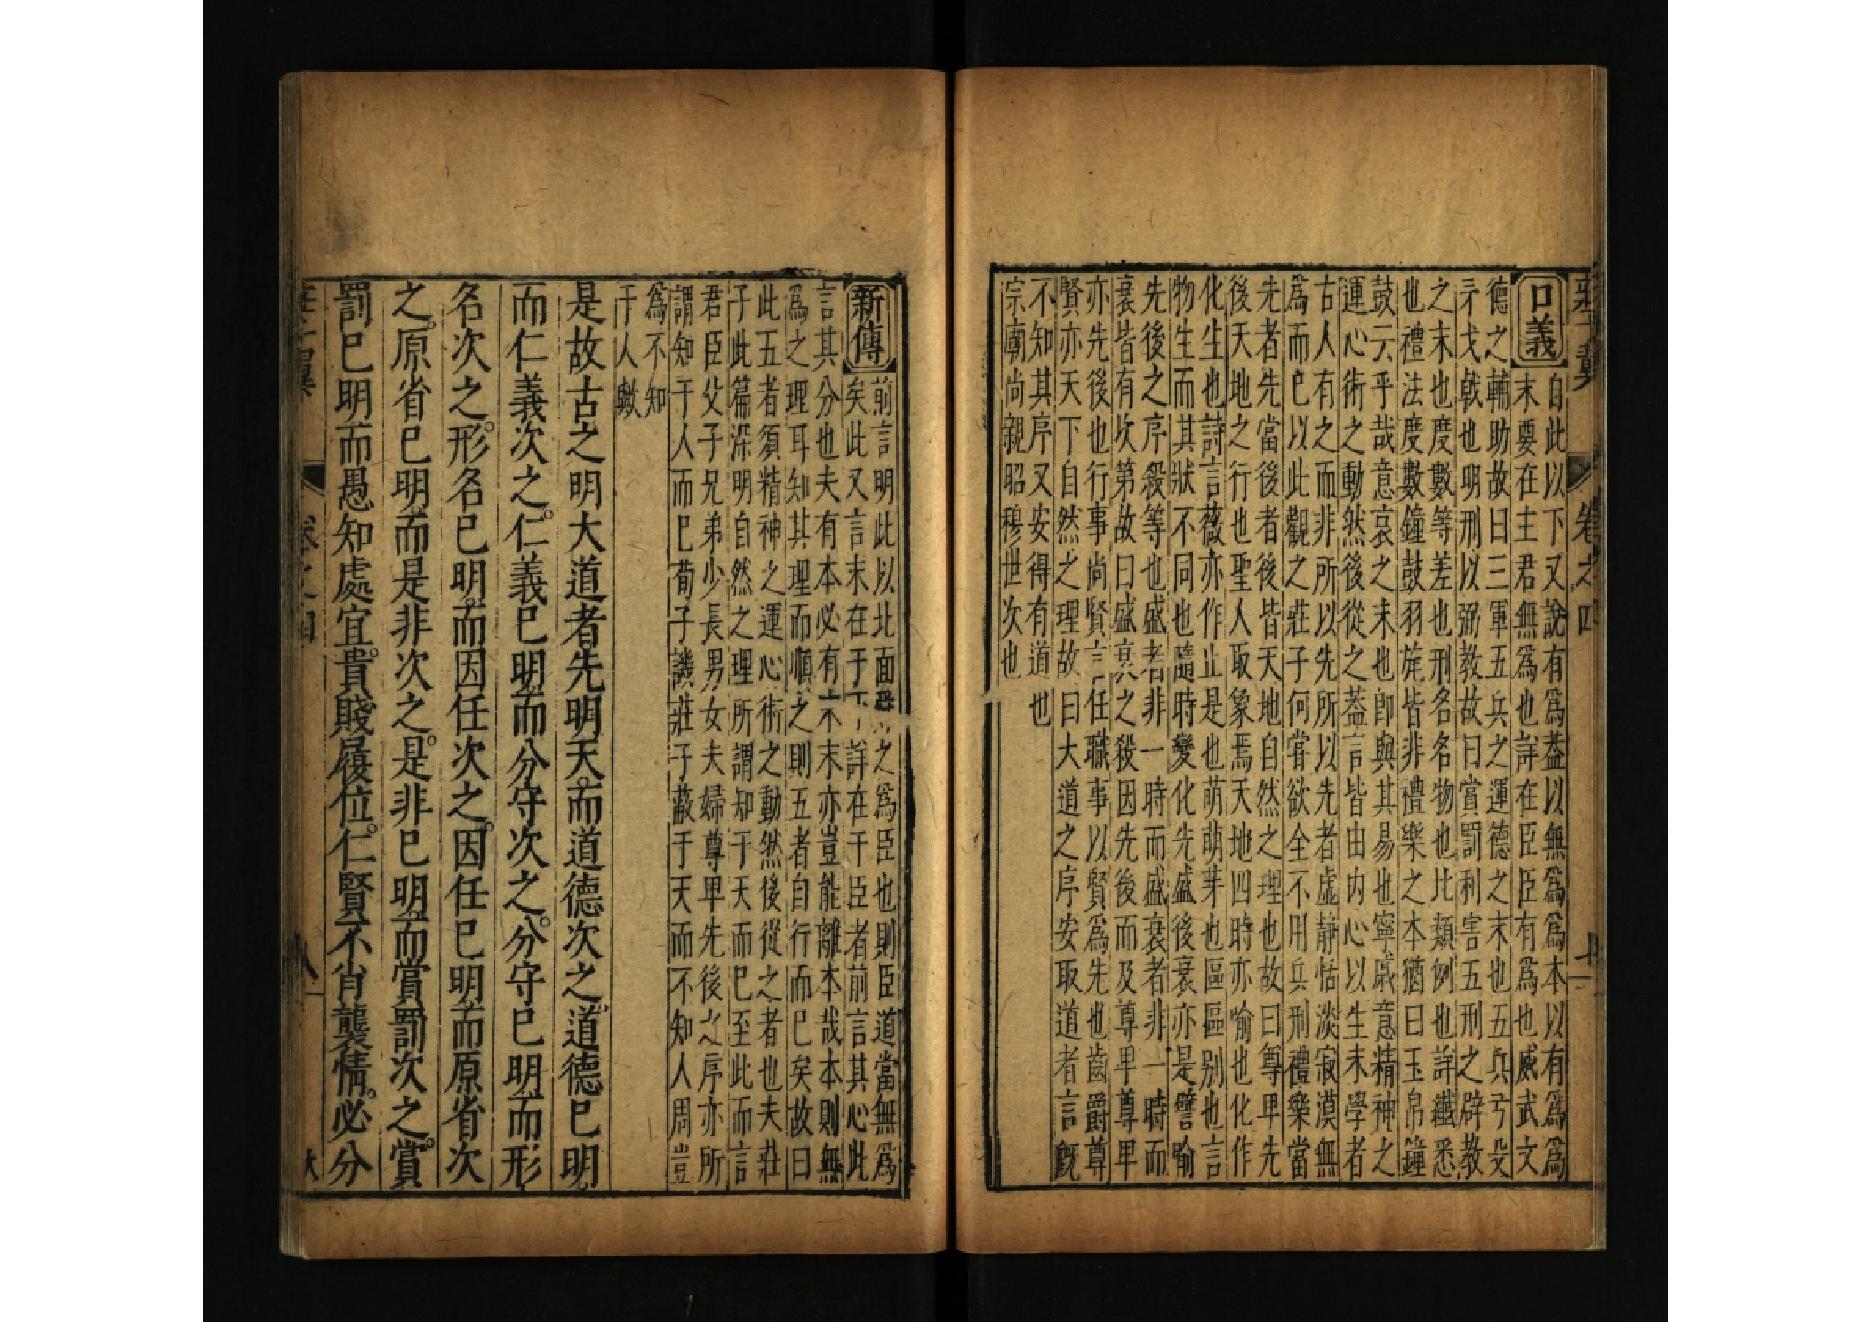 莊子翼 卷之四
口義
自此以下又說有爲葢以無爲爲本以有爲爲
末要在主君無爲也詳在臣臣有爲也威武文
德之輔助故曰三軍五兵之運德之末也五兵弓殳
矛戈戟也明刑以弼教故曰賞罰利害五刑之辟教
之末也度數等差也刑名名物也比類例也詳纎悉
也禮法度數鐘鼓羽旄皆非禮樂之本猶曰玉帛鐘
鼓云乎哉意哀之末也即與其易也寧戚意精神之
運心術之動然後從之葢言皆由内心以生末學者
古人有之而非所以先所以先者虛静恬淡寂漠無
爲而已以此觀之莊子何甞欲全不用兵刑禮樂當
先者先當後者後皆天地自然之理也故曰尊卑先
後天地之行也聖人取象焉天地四時亦喻也化作
化生也詩言薇亦作止是也萌萌芽也區區别也言
物生而其狀不同也隨時變化先盛後衰亦是譬喻
先後之序殺等也盛者非一時而盛衰者非一時而
衰皆有次第故曰盛衰之殺因先後而及尊卑尊卑
亦先後也行事尚賢言任職事以賢爲先也齒爵尊
賢亦天下自然之理故曰大道之序安取道者言旣
不知其序又安得有道也
宗廟尚親昭穆世次也
新傳
前言明此以北面 之爲臣也則臣道當無爲
矣此又言末在于下詳在于臣者前言其心此
言其分也夫有本必有末末亦豈能離本哉本則無
爲之理耳知其理而順之則五者自行而已矣故曰
此五者須精神之運心術之動然後從之者也夫莊
子此篇深明自然之理所謂知于天而已至此而言
君臣父子兄弟少長男女夫婦尊卑先後之序亦所
謂知于人而已荀子譏莊子蔽于天而不知人周豈
爲不知
于人歟
是故古之明大道者先明天而道德次之道德已明
而仁義次之仁義已明而分守次之分守已明而形
名次之形名已明而因任次之因任已明而原省次
之原省已明而是非次之是非已明而賞罰次之賞
罰已明而愚知處宜貴賤履位仁賢不肖襲情必分